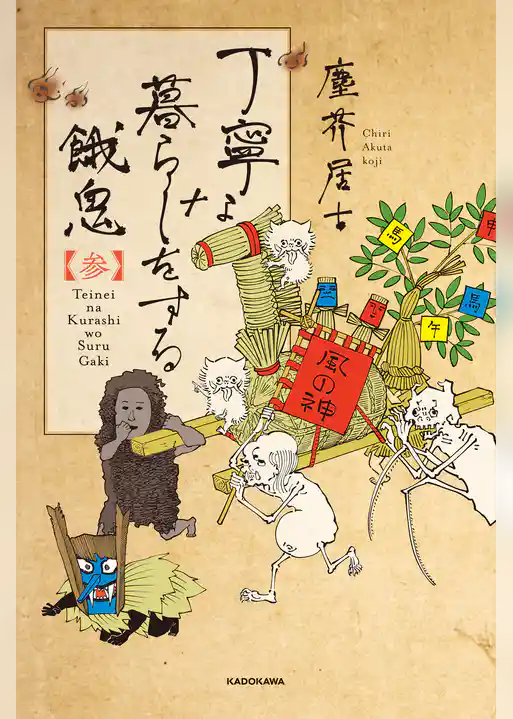 塵芥居士
Chiri
Akuta
koji
丁寧な
暮らしをする
餓鬼
【参】
Teinei
na
Kurashi
wo
Suru
Gaki
馬
申
馬
午
風の神
KADOKAWA